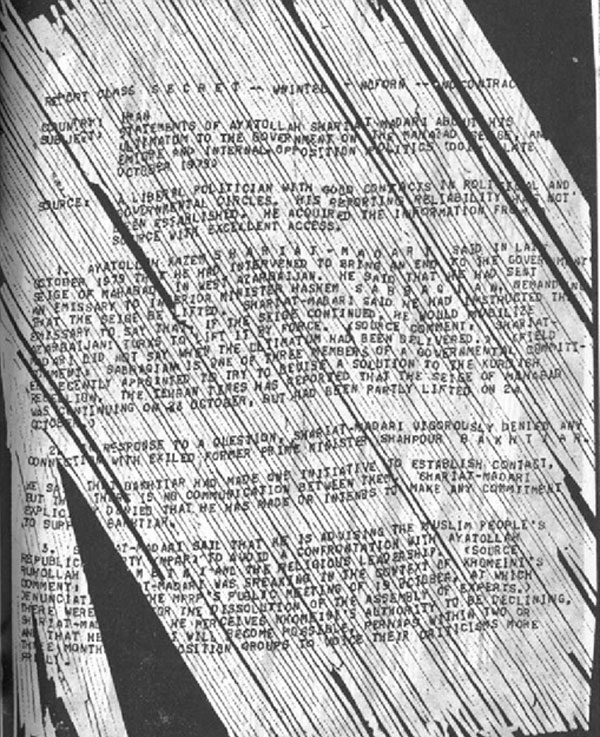 REPORT CLASS S E C R E T -- WNINTEL - NOFORN --
COUNTRY: IRAN
SUBJECT: STATEMENTS OF AYATOLLAH SHARIAT-MADARI ABOUT HIS
ULTIMATUM TO THE GOVERNMENT ON THE MAHABAD SEIGE, AND
EMIGRE AND INTERNAL OPPOSITION POLITICS (DOI: LATE
OCTOBER 1979)
SOURCE: A LIBERAL POLITICIAN WITH GOOD CONTACTS IN POLITICAL AND
GOVERNMENTAL CIRCLES. HIS REPORTING RELIABILITY HAS NOT
BEEN ESTABLISHED. HE ACQUIRED THE INFORMATION FROM A
SOURCE WITH EXCELLENT ACCESS.
1. AYATOLLAH KAZEM S H A R I A T - M A D A R I SAID IN LATE
OCTOBER 1979 THAT HE HAD INTERVENED TO BRING AN END TO THE GOVERNMENT
SEIGE OF MAHABAD IN WEST AZARBAIJAN. HE SAID THAT HE HAD SENT
AN EMISSARY TO INTERIOR MINISTER HASHEM S A B A Q I A N, DEMANDING
THAT THE SEIGE BE LIFTED. SHARIAT-MADARI SAID HE HAD INSTRUCTED THE
EMISSARY TO SAY THAT, IF THE SEIGE CONTINUED, HE WOULD MOBILIZE
AZARBAIJANI TURKS TO LIFT IT BY FORCE. (SOURCE COMMENT: SHARIAT-
MADARI DID NOT SAY WHEN THE ULTIMATUM HAD BEEN DELIVERED.) (FIELD
COMMENT: SABAQIAN IS ONE OF THREE MEMBERS OF A GOVERNMENTAL COMMIT-
EE RECENTLY APPOINTED TO TRY TO DEVISE A SOLUTION TO THE KURDISH
REBELLION. THE TEHRAN TIMES HAS REPORTED THAT THE SEIGE OF MAHABAD
WAS CONTINUING ON 23 OCTOBER, BUT HAD BEEN PARTLY LIFTED ON 24
OCTOBER.)
2. IN RESPONSE TO A QUESTION, SHARIAT-MADARI VIGOROUSLY DENIED ANY
CONNECTION WITH EXILED FORMER PRIME MINISTER SHAHPOUR B A K H T I A R.
HE SAID THAT BAKHTIAR HAD MADE ONE INITIATIVE TO ESTABLISH CONTACT,
BUT THERE IS NO COMMUNICATION BETWEEN THEM. SHARIAT-MADARI
EXPLICITLY DENIED THAT HE HAS MADE OR INTENDS TO MAKE ANY COMMITMENT
TO SUPPORT BAKHTIAR.
3. SHARIAT-MADARI SAID THAT HE IS ADVISING THE MUSLIM PEOPLE'S
REPUBLICAN PARTY (MPRP) TO AVOID A CONFRONTATION WITH AYATOLLAH
RUHOLLAH K H O M E I N I AND THE RELIGIOUS LEADERSHIP. (SOURCE
COMMENT: SHARIAT-MADARI WAS SPEAKING IN THE CONTEXT OF KHOMEINI'S
DENUNCIATION OF THE MPRP'S PUBLIC MEETING OF 19 OCTOBER, AT WHICH
THERE WERE FOR THE DISSOLUTION OF THE ASSEMBLY OF EXPERTS.)
SHARIAT-MADARI HE PERCEIVES KHOMEINI'S AUTHORITY TO BE DECLINING,
AND THAT HE WILL BECOME POSSIBLE, PERHAPS WITHIN TWO OR
THREE MONTHS OPPOSITION GROUPS TO VOICE THEIR CRITICISMS MORE
FREELY.